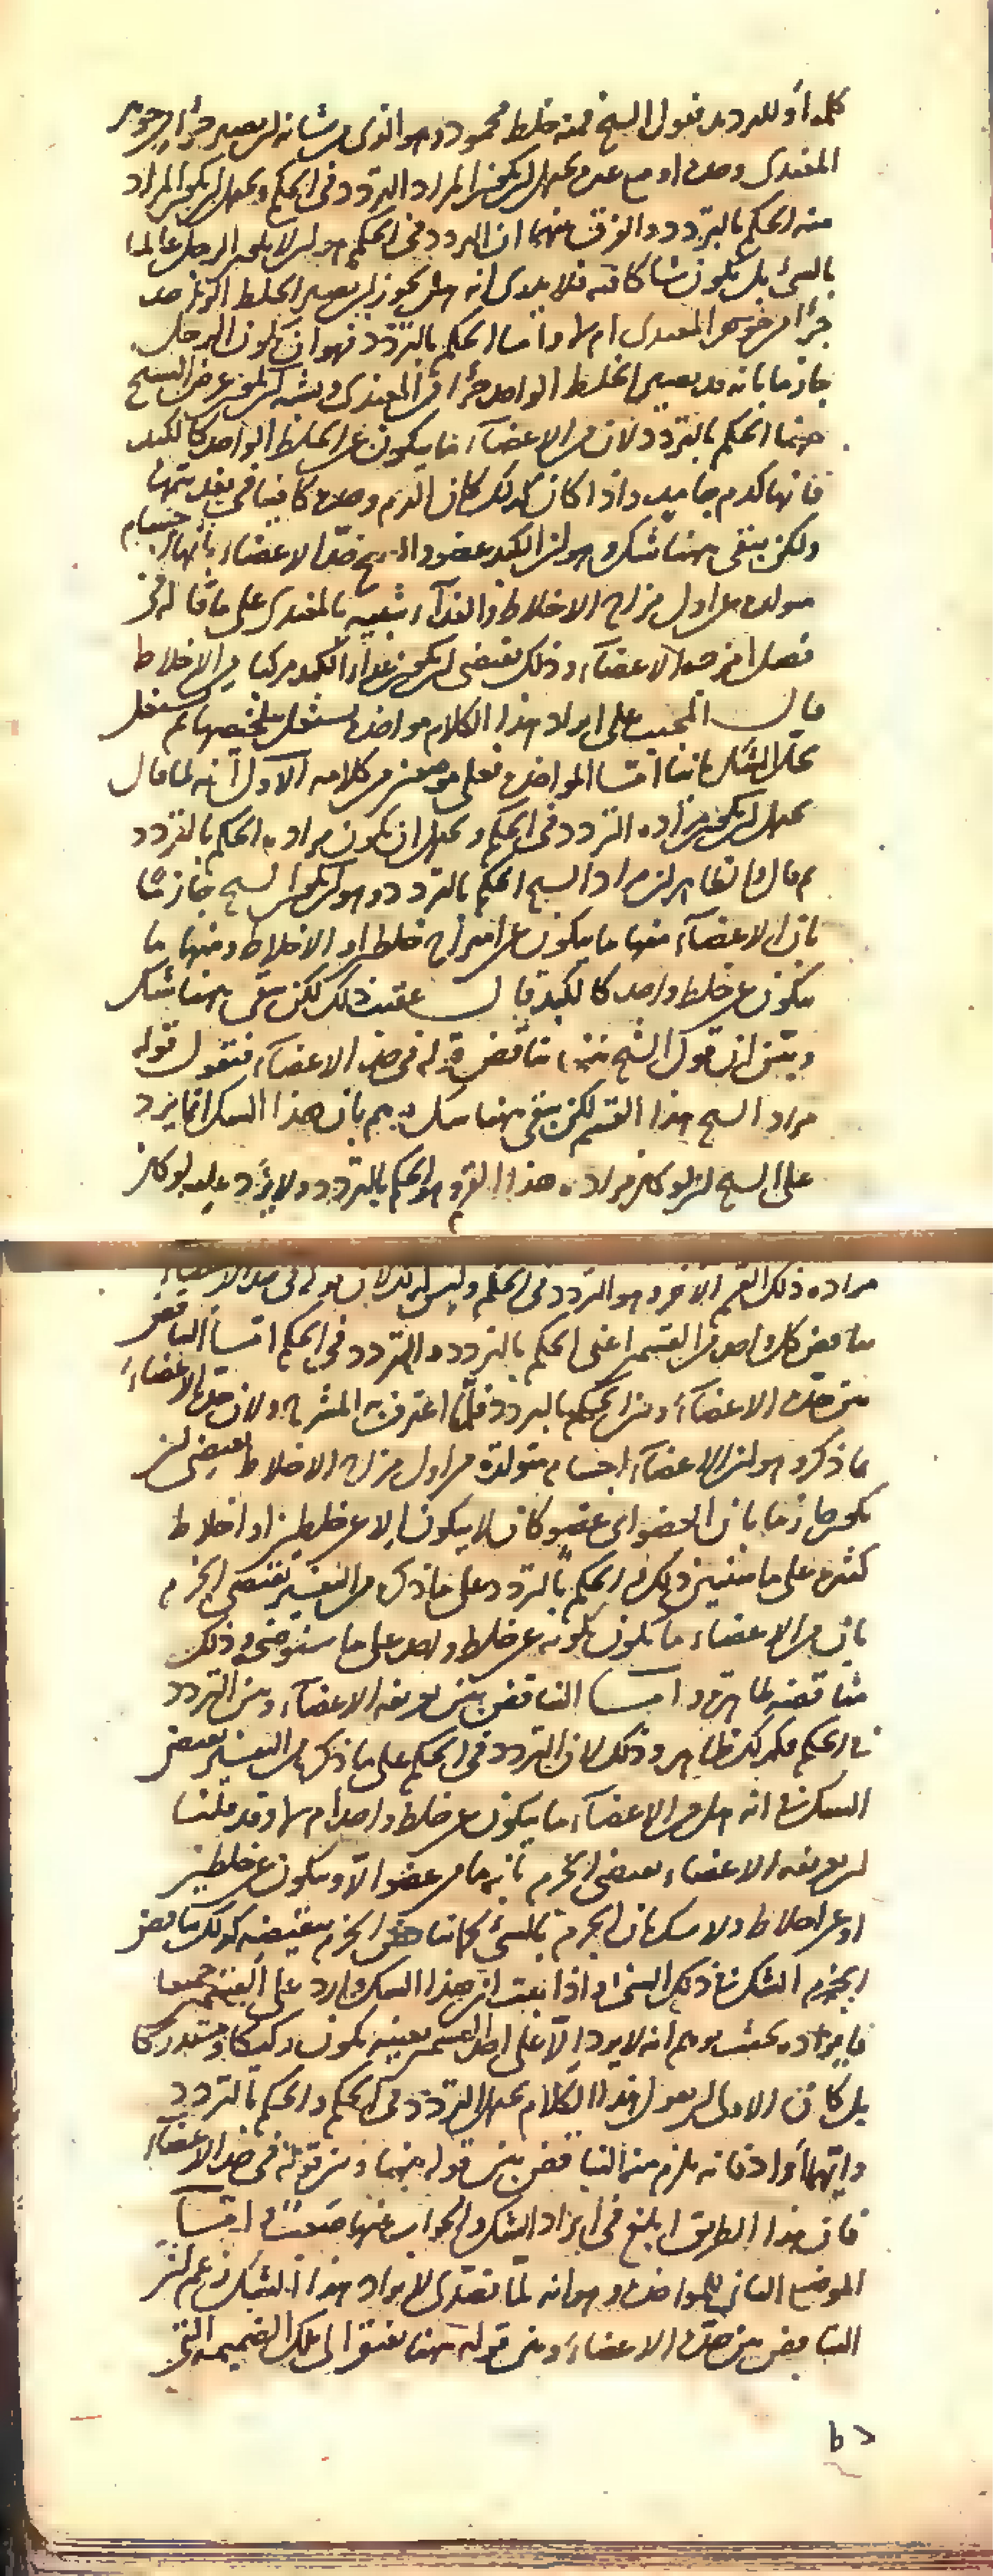 كلمة أو للتردد فقول الشيخ فمنه خلط محمود وهو الذى من شانه ان يصير جزأ من جوهر
المغتذى وحده او مع غيره يحتمل ان يكون المراد التردد فى الحكم ويحتمل ان يكون المراد
منه الحكم بالتردد والفرق بينهما ان التردد فى الحكم هو ان لا يكون الرجل عالما
بالشئ بل يكون شاكا فيه فلا يدرى انه هل يجوز ان يصير الخلط الواحد
جزأ من جوهر المغتذى ام لا واما الحكم بالتردد فهو ان يكون الرجل
جازما بانه قد يصير الخلط الواحد جزأ من المغتذى ويشبه ان يكون غرض الشيخ
ههنا الحكم بالتردد لان من الاعضاء ما يكون عن الخلط الواحد كالكبد
فانها كدم جامد واذا كان كذلك كان الدم وحده كافيا فى تغذيتها
ولكن يبقى ههنا شك وهو ان الكبد عضو والشيخ حد الاعضاء بانها اجسام
متولدة من اول مزاج الاخلاط والغذاء شبيه بالمغتذى على ما قاله فى
فصل اخر حد الاعضاء وذلك يقتضى ان يكون غذاء الكبد مركبا من الاخلاط
قال المجيب على ايراد هذا الكلام مواخذة نشتغل بتلخيصها ثم نشتغل
بحل الشك ثانيا اما المواخذة فعلى موضعين من كلامه الاول انه لما قال
يحتمل ان يكون مراده التردد فى الحكم ويحتمل ان يكون مراده الحكم بالتردد
ثم قال والظاهر ان مراد الشيخ الحكم بالتردد وهو ان يكون الشيخ جازما
بان الاعضاء منها ما يكون عن امتزاج خلط او الاخلاط ومنها ما
يكون عن خلط واحد كالكبد قال عقيب ذلك لكن يبقى ههنا شك
وبين ان قول الشيخ هذا يناقض قوله فى حد الاعضاء فنقول قوله
مراد الشيخ هذا القسم لكن يبقى ههنا شك يوهم بان هذا الشك انما يرد
على الشيخ ان لو كان مراده هذا القسم وهو الحكم بالتردد ولا يرد عليه لو كان
مراده ذلك القسم الاخر وهو التردد فى الحكم وليس كذلك لان قوله فى حد الاعضاء
يناقض كل واحد من القسمين اعنى الحكم بالتردد والتردد فى الحكم اما التناقض
بين حد الاعضاء وبين الحكم بالتردد فلما اعترف به المشرح ولان حد الاعضاء
ما ذكره وهو ان الاعضاء اجسام متولدة من اول مزاج الاخلاط يقتضى ان
يكون جازما بان العضو اى عضو كان لا يكون الا عن خلطين او اخلاط
كثيرة على ما سنبين ذلك والحكم بالتردد على ما ذكر من التفسير يقتضى الجزم
بان من الاعضاء ما يكون تكونه عن خلط واحد على ما سنوضح وذلك
مناقضة ظاهرة واما التناقض بين تعريف الاعضاء وبين التردد
فى الحكم فكذلك ظاهر وذلك لان التردد فى الحكم على ما ذكر من التفسير يقتضى
الشك فى انه هل من الاعضاء ما يكون عن خلط واحد ام لا وقد قلنا
ان تعريف الاعضاء يقتضى الجزم بانه ما من عضو الا ويكون عن خلطين
او عن اخلاط ولا شك ان الجزم بالشئ كما يناقض الجزم بنقيضه كذلك يناقض
الجزم الشك فى ذلك الشئ واذا ثبت ان هذا الشك وارد على القسمين جميعا
فايراده بحيث يوهم انه لا يرد الا على احد القسمين بعينه يكون ركيكا ومستدركا
بل كان الاولى ان يقول هذا الكلام يحتمل التردد فى الحكم والحكم بالتردد
وايهما اراد فانه يلزم منه التناقض بين قوله ههنا وبين قوله فى حد الاعضاء
فان هذا الطريق ابلغ فى ايراد الشك والجواب عنها صعب واما
الموضع الثانى للمواخذة وهو انه لما تصدى لايراد هذا الشك زعم ان
التناقض بين حد الاعضاء وبين قوله ههنا يفتقر الى تلك الضميمة التى